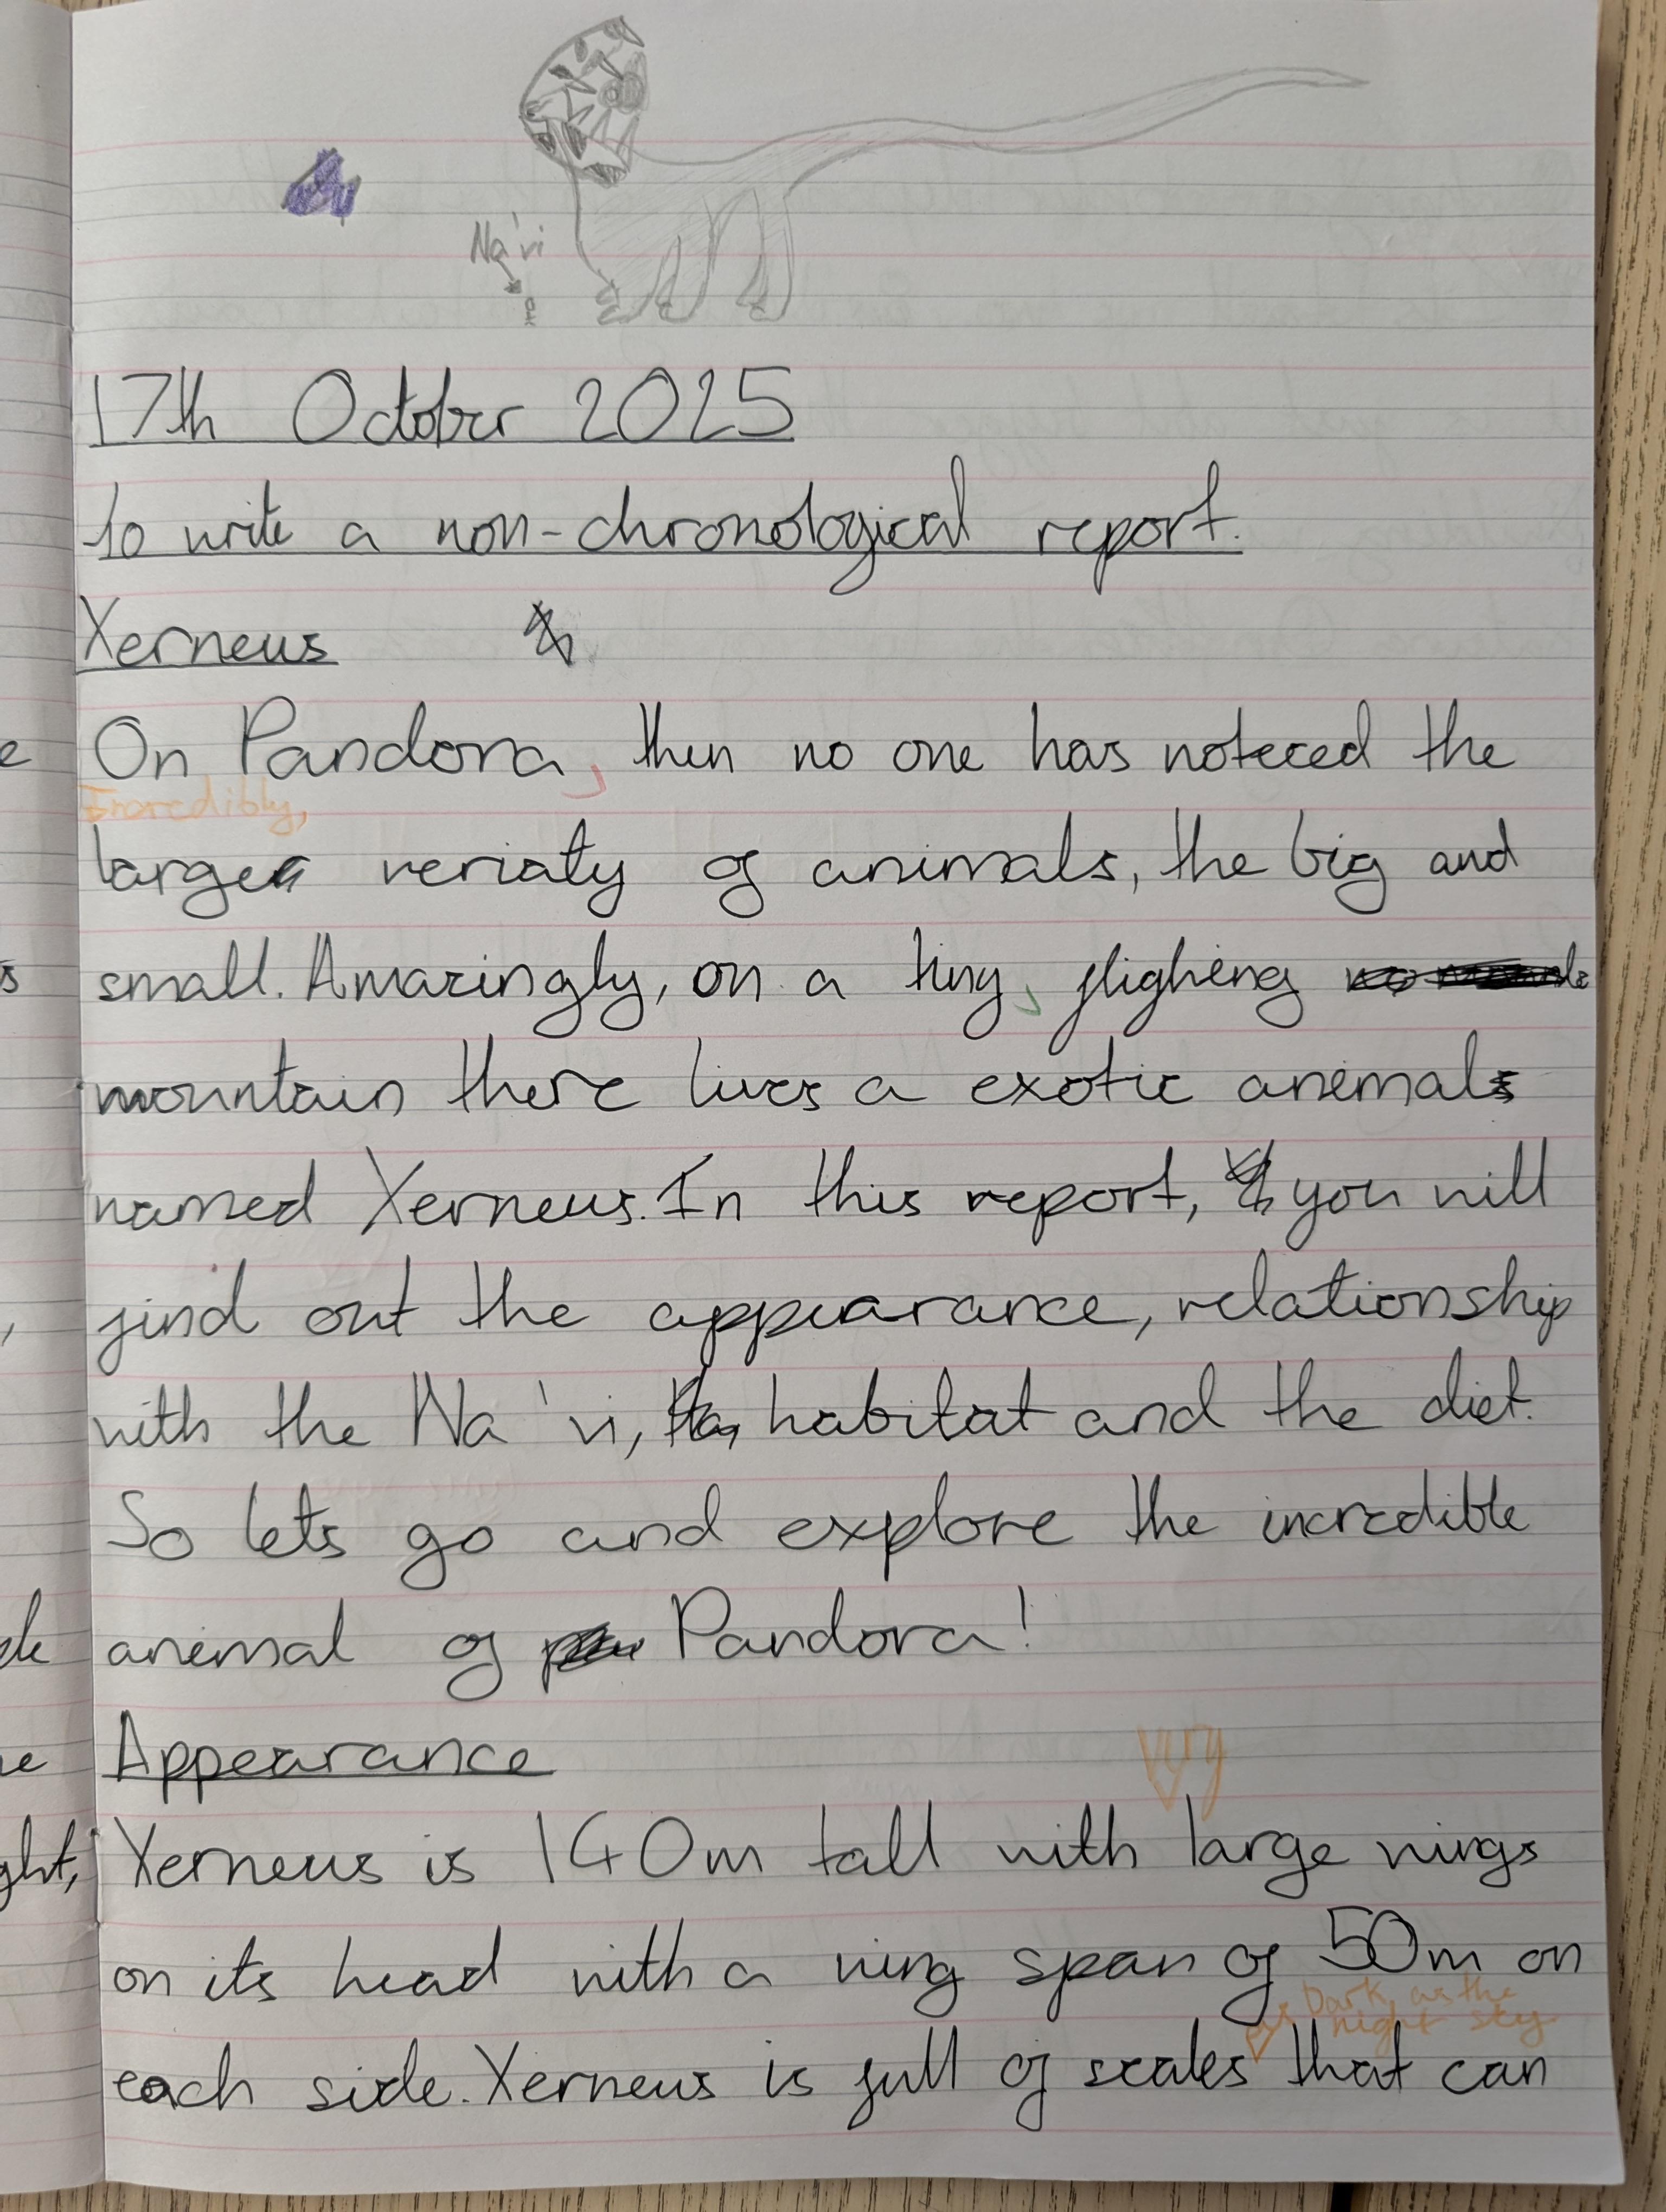 Na'vi
17th October 2025
to write a non-chronological report.
Xerneus
On Pandora, then no one has noteced the
Incredibly,
large veriaty of animals, the big and
small. Amazingly, on a tiny, fligheng
mountain there lives a exotic anemals
named Xerneus. In this report, you will
find out the appearance, relationship
with the Na'vi, habitat and the diet.
So lets go and explore the incredible
anemal of Pandora!
Appearance
very
Xerneus is 140m tall with large wings
on its head with a wing span of 50m on
Dark as the
night sky
each side. Xerneus is full of scales that can